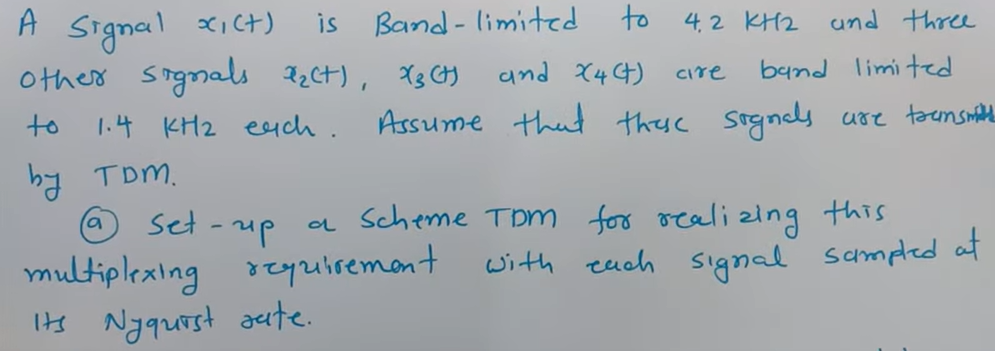 A Signal x₁(t) is Band-limited to 4.2 KHz and three
other signals x₂(t), x₃(t) and x₄(t) are band limited
to 1.4 KHz each. Assume that these signals are transmit
by TDM.
(a) Set-up a Scheme TDM for realizing this
multiplexing requirement with each signal sampled at
its Nyquist rate.